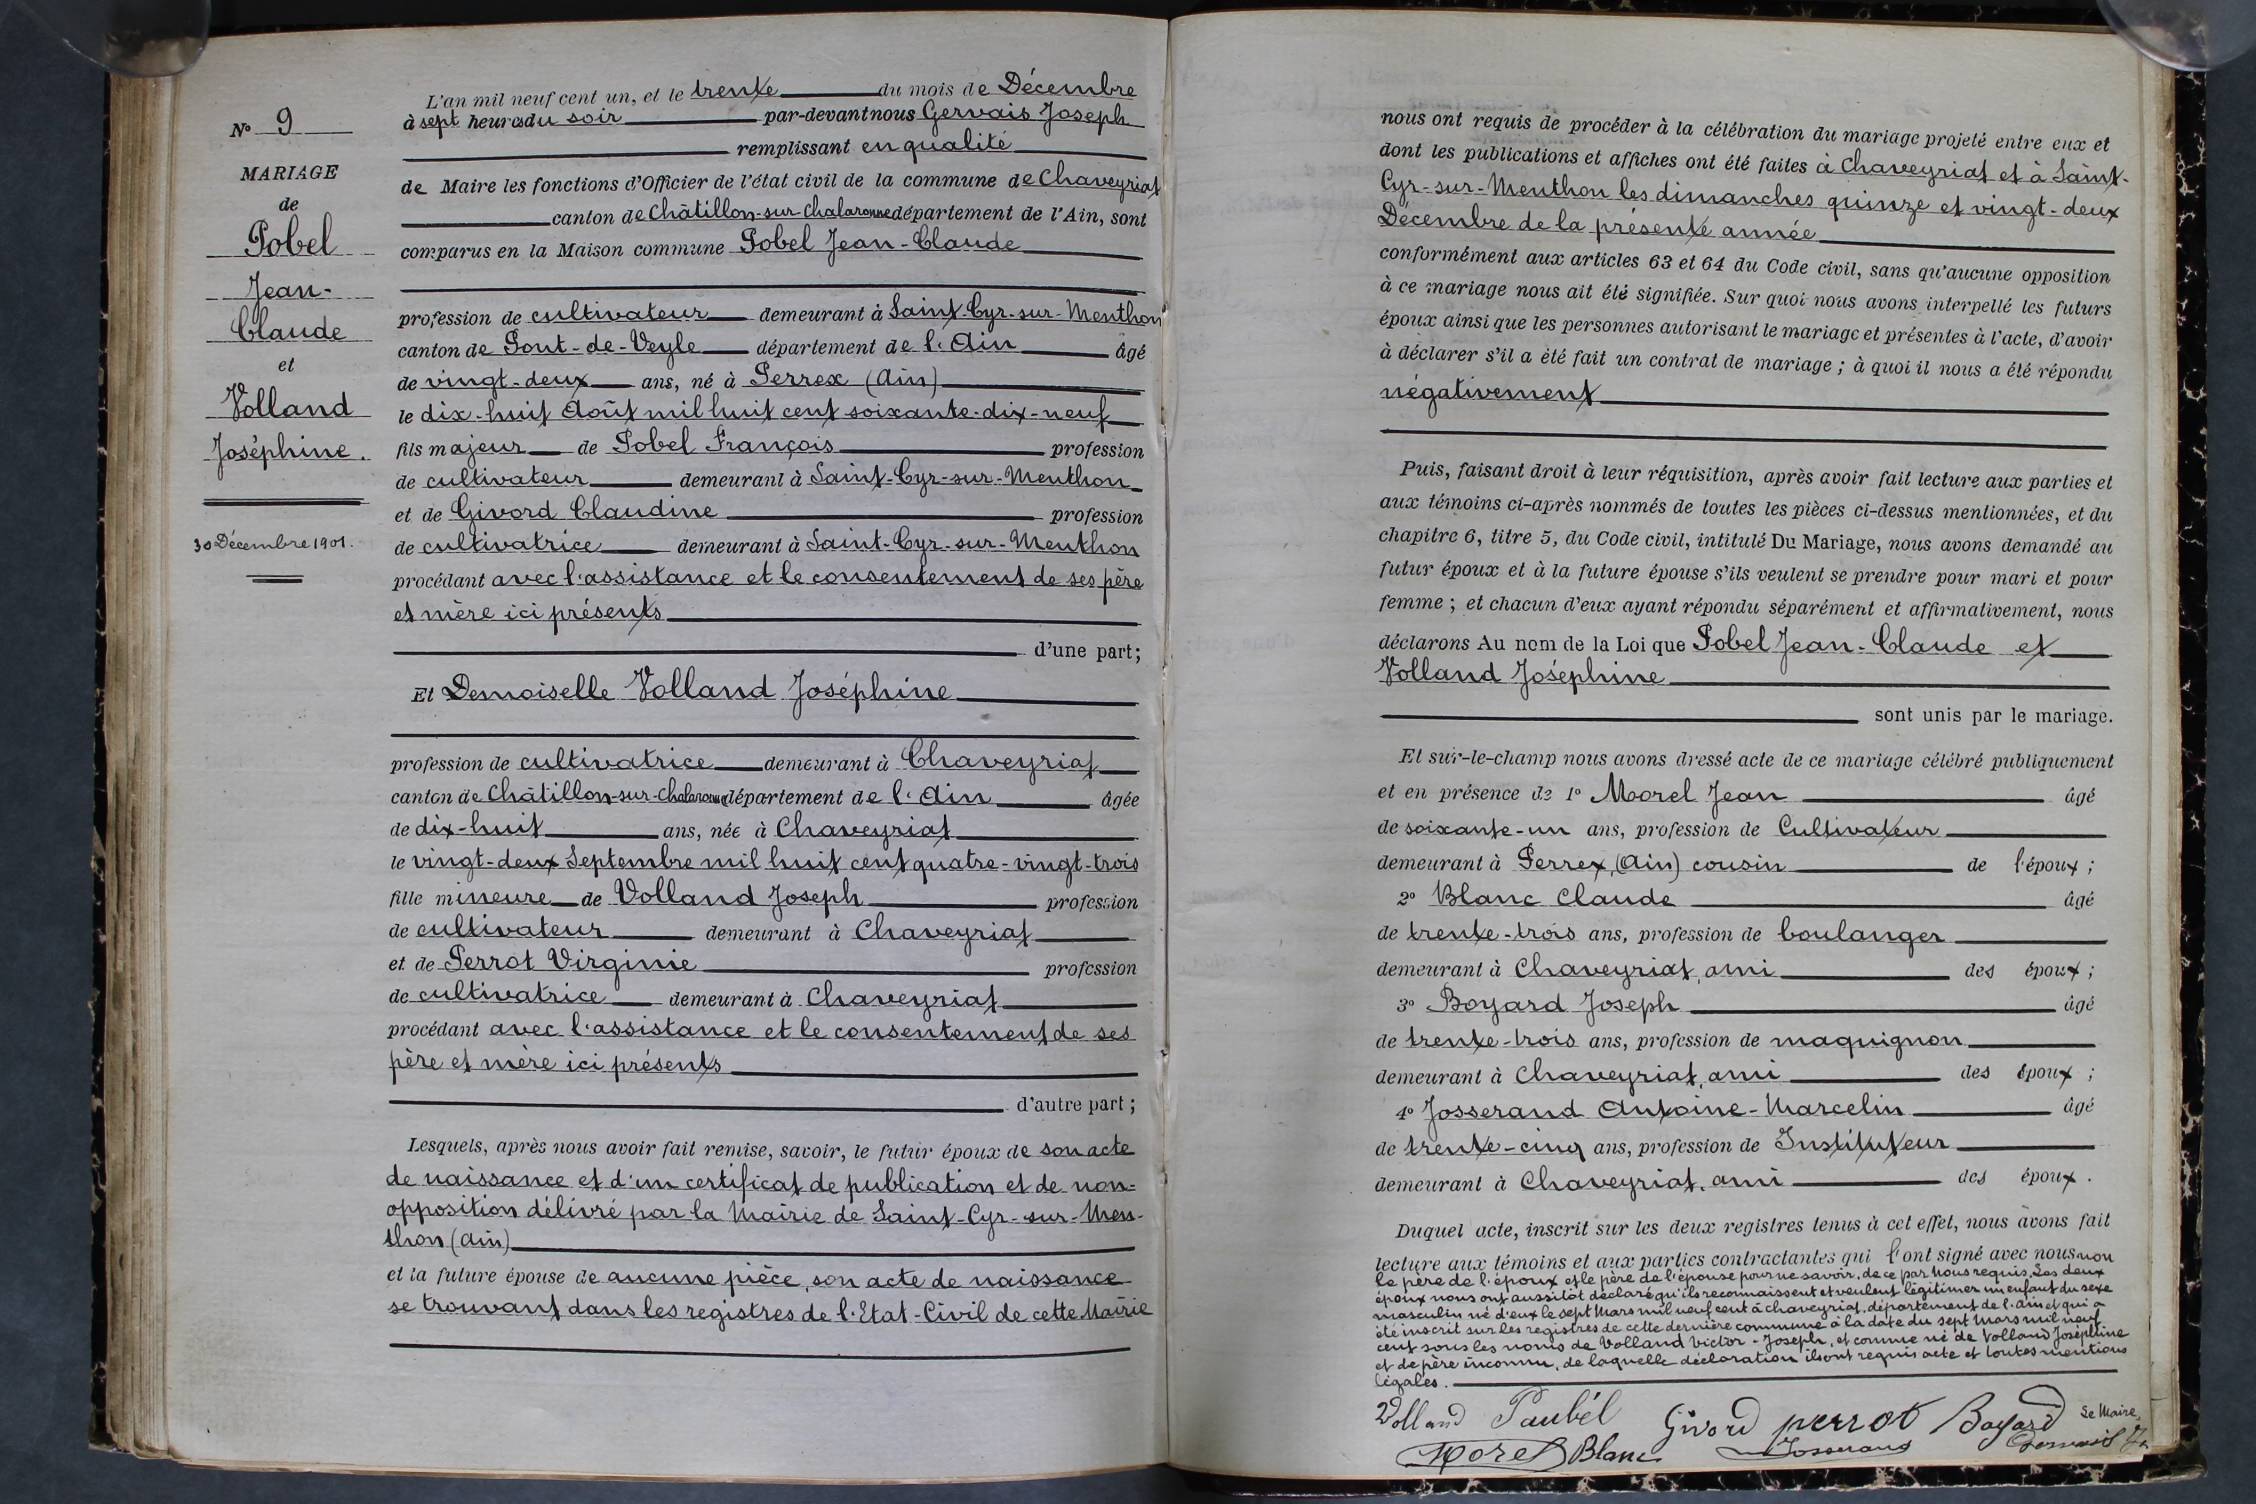 N° 9
MARIAGE
de
Pobel
Jean-
Claude
et
Volland
Joséphine.
30 Décembre 1901.
L'an mil neuf cent un, et le trente du mois de Décembre
à sept heures du soir par-devant nous Gervais Joseph
remplissant en qualité
de Maire les fonctions d'Officier de l'état civil de la commune de Chaveyriat
canton de Châtillon-sur-Chalaronne département de l'Ain, sont
comparus en la Maison commune Pobel Jean-Claude
profession de cultivateur demeurant à Saint-Cyr-sur-Menthon
canton de Pont-de-Veyle département de l'Ain âgé
de vingt-deux ans, né à Perrex (Ain)
le dix-huit Août mil huit cent soixante-dix-neuf
fils majeur de Pobel François profession
de cultivateur demeurant à Saint-Cyr-sur-Menthon
et de Givord Claudine profession
de cultivatrice demeurant à Saint-Cyr-sur-Menthon
procédant avec l'assistance et le consentement de ses père
et mère ici présents
d'une part;
Et Demoiselle Volland Joséphine
profession de cultivatrice demeurant à Chaveyriat
canton de Châtillon-sur-Chalaronne département de l'Ain âgée
de dix-huit ans, née à Chaveyriat
le vingt-deux Septembre mil huit cent quatre-vingt-trois
fille mineure de Volland Joseph profession
de cultivateur demeurant à Chaveyriat
et de Perrot Virginie profession
de cultivatrice demeurant à Chaveyriat
procédant avec l'assistance et le consentement de ses
père et mère ici présents
d'autre part;
Lesquels, après nous avoir fait remise, savoir, le futur époux de son acte
de naissance et d'un certificat de publication et de non-
opposition délivré par la Mairie de Saint-Cyr-sur-Men-
thon (Ain)
et la future épouse de aucune pièce, son acte de naissance
se trouvant dans les registres de l'Etat-Civil de cette Mairie
nous ont requis de procéder à la célébration du mariage projeté entre eux et
dont les publications et affiches ont été faites à Chaveyriat et à Saint-
Cyr-sur-Menthon les dimanches quinze et vingt-deux
Décembre de la présente année
conformément aux articles 63 et 64 du Code civil, sans qu'aucune opposition
à ce mariage nous ait été signifiée. Sur quoi nous avons interpellé les futurs
époux ainsi que les personnes autorisant le mariage et présentes à l'acte, d'avoir
à déclarer s'il a été fait un contrat de mariage; à quoi il nous a été répondu
négativement
Puis, faisant droit à leur réquisition, après avoir fait lecture aux parties et
aux témoins ci-après nommés de toutes les pièces ci-dessus mentionnées, et du
chapitre 6, titre 5, du Code civil, intitulé Du Mariage, nous avons demandé au
futur époux et à la future épouse s'ils veulent se prendre pour mari et pour
femme; et chacun d'eux ayant répondu séparément et affirmativement, nous
déclarons Au nom de la Loi que Pobel Jean-Claude et
Volland Joséphine
sont unis par le mariage.
Et sur-le-champ nous avons dressé acte de ce mariage célébré publiquement
et en présence de 1° Morel Jean âgé
de soixante-un ans, profession de Cultivateur
demeurant à Perrex (Ain) cousin de l'époux;
2° Blanc Claude âgé
de trente-trois ans, profession de boulanger
demeurant à Chaveyriat, ami des époux;
3° Boyard Joseph âgé
de trente-trois ans, profession de maquignon
demeurant à Chaveyriat, ami des époux;
4° Josserand Antoine-Marcelin âgé
de trente-cinq ans, profession de Instituteur
demeurant à Chaveyriat, ami des époux.
Duquel acte, inscrit sur les deux registres tenus à cet effet, nous avons fait
lecture aux témoins et aux parties contractantes qui l'ont signé avec nous non
le père de l'époux et le père de l'épouse pour ne savoir, de ce par Nous requis. Les deux
époux nous ont aussitôt déclaré qu'ils reconnaissent et veulent légitimer un enfant du sexe
masculin né d'eux le sept Mars mil neuf cent à Chaveyriat, département de l'Ain et qui a
été inscrit sur les registres de cette dernière commune à la date du sept Mars mil neuf
cent sous les noms de Volland Victor-Joseph, et comme né de Volland Joséphine
et de père inconnu, de laquelle déclaration ils ont requis acte et toutes mentions
légales.
Volland Paubél Givord perrot Boyard Le Maire,
Morel Blanc Josserand Gervais Jh